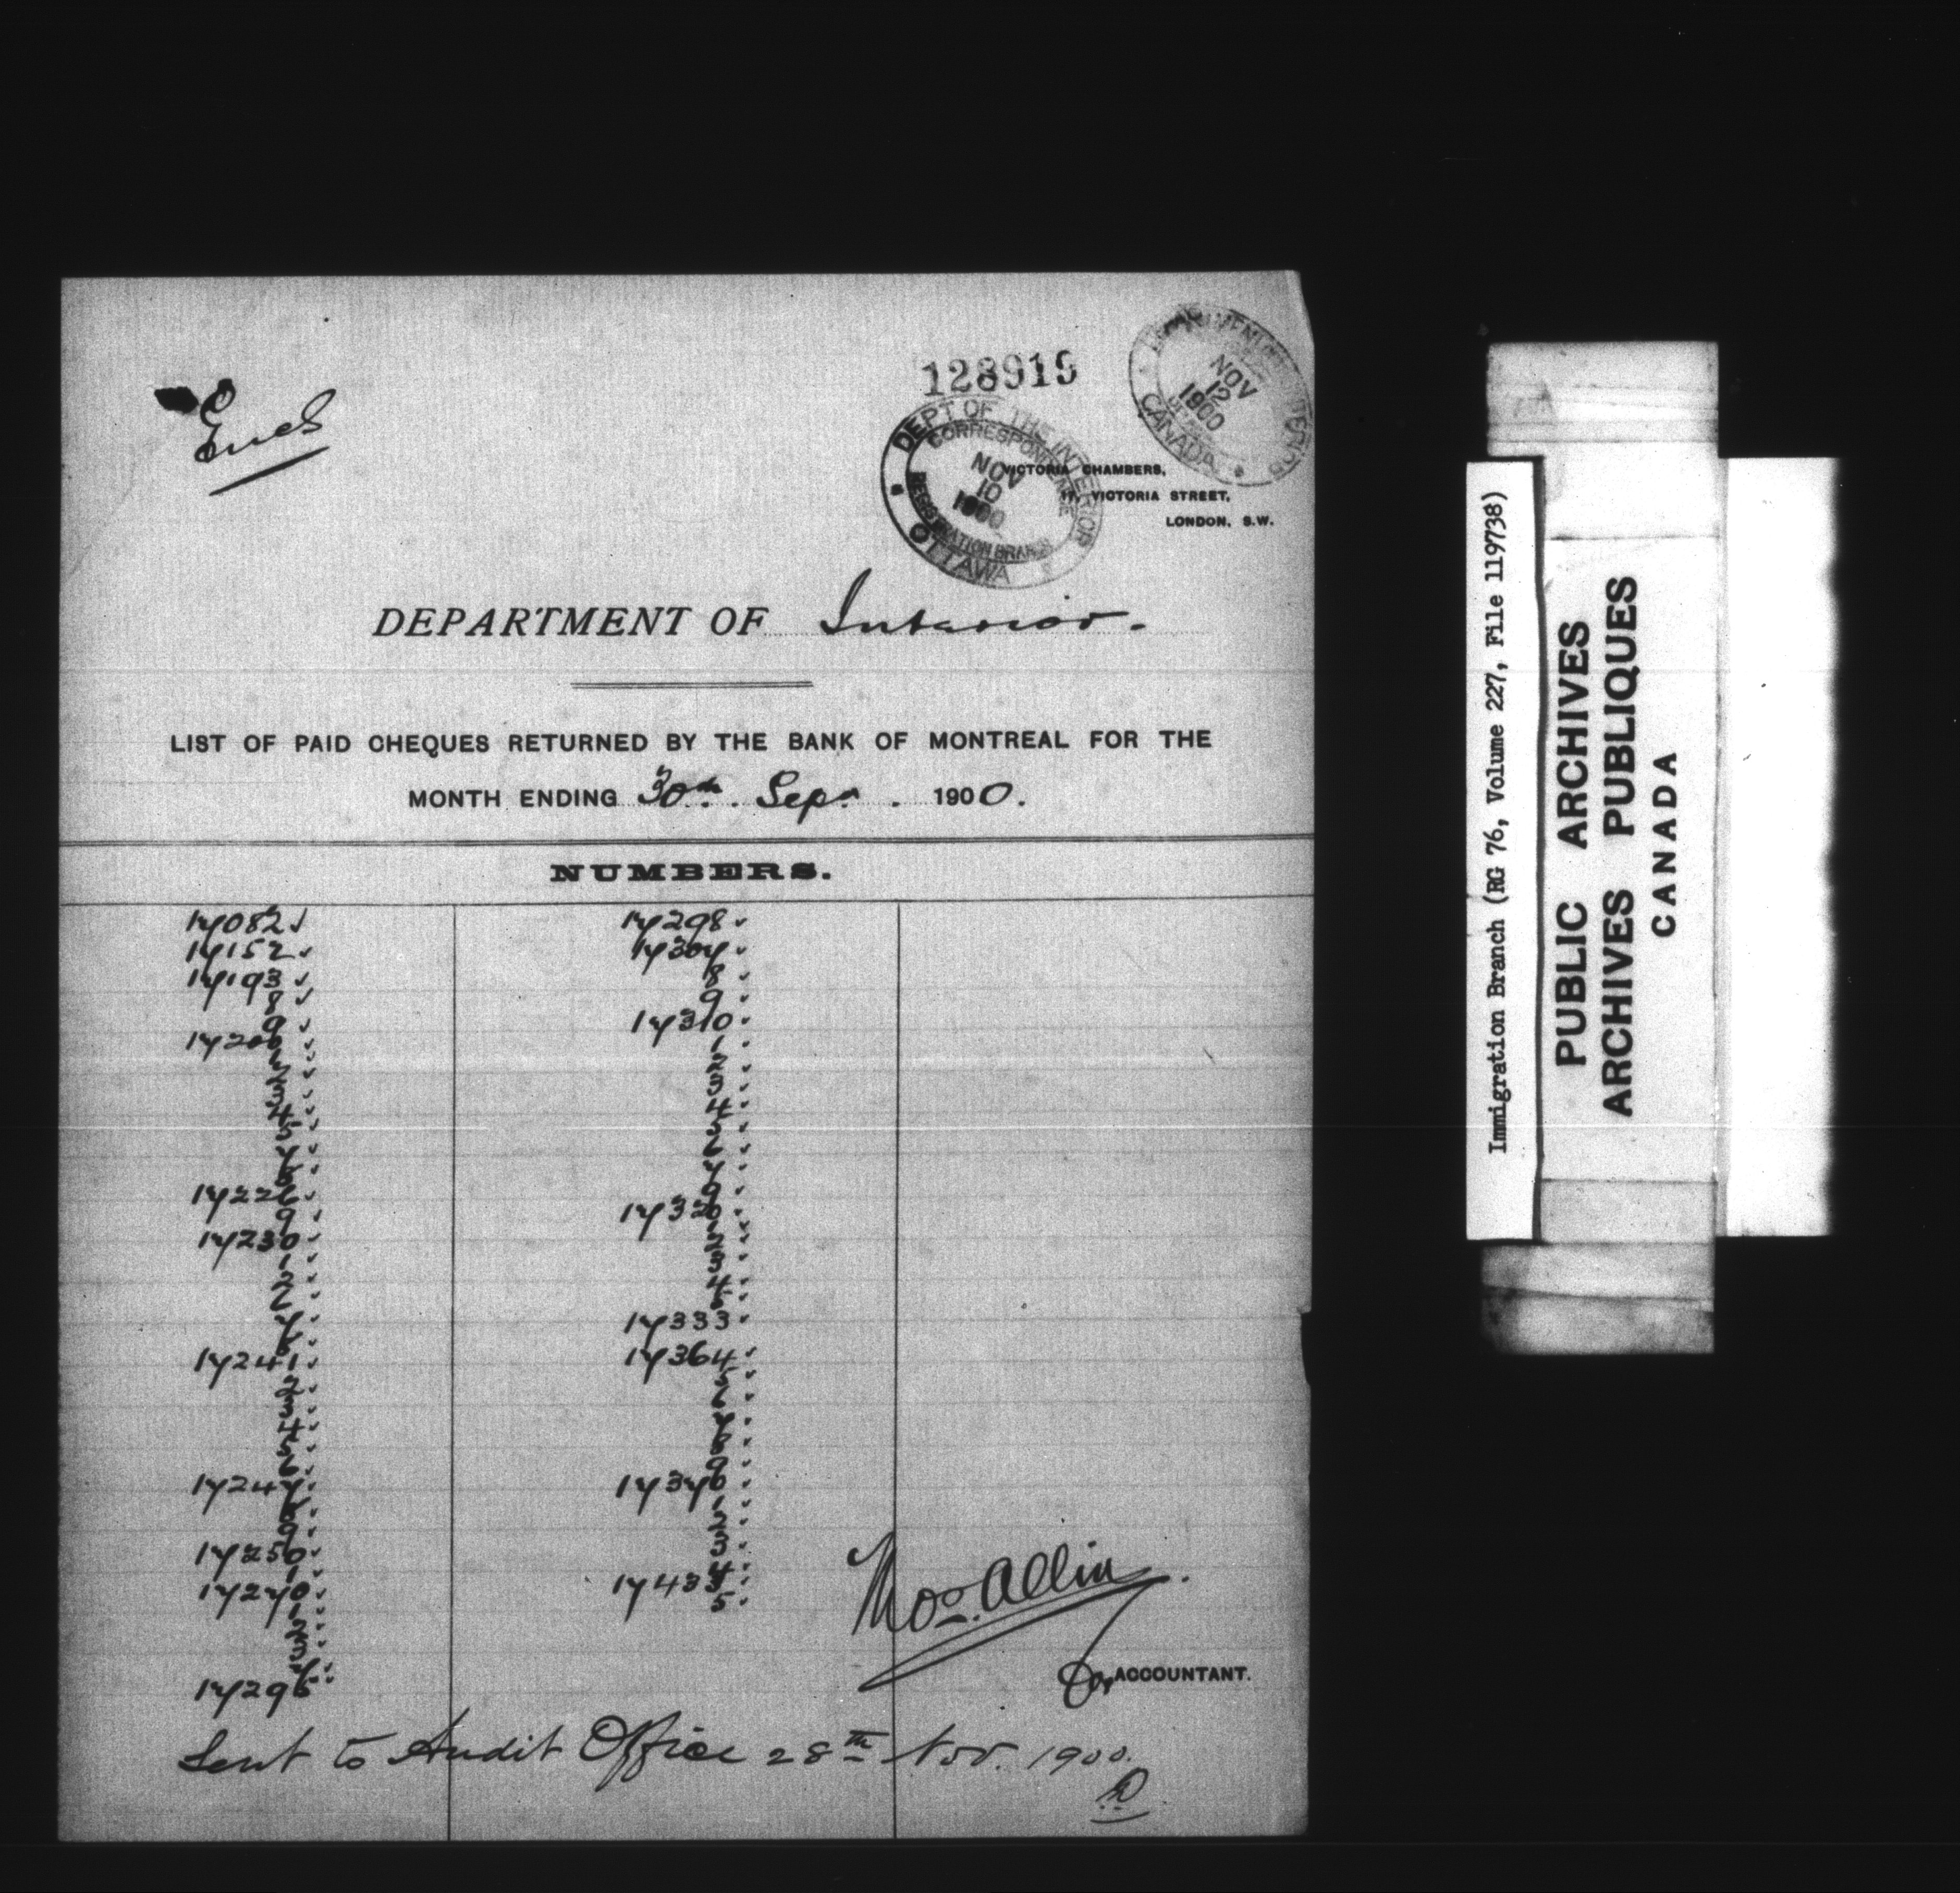 128919
DEPARTMENT OF THE INTERIOR
NOV
12
1900
CANADA
Encl
DEPT OF THE INTERIOR
CORRESPONDENCE
NOV
10
1900
REGISTRATION BRANCH
OTTAWA
VICTORIA CHAMBERS,
17, VICTORIA STREET,
LONDON, S.W.
DEPARTMENT OF Interior.
LIST OF PAID CHEQUES RETURNED BY THE BANK OF MONTREAL FOR THE
MONTH ENDING 30th Sepr. 1900.
NUMBERS.
17082 ✓
17152 ✓
17193 ✓
8 ✓
9 ✓
17200 ✓
2 ✓
3 ✓
4 ✓
17226 ✓
9 ✓
17230 ✓
1 ✓
2 ✓
17241 ✓
2 ✓
3 ✓
4 ✓
5 ✓
6 ✓
17247 ✓
8 ✓
9 ✓
17250 ✓
1 ✓
17270 ✓
1 ✓
2 ✓
3 ✓
17296
17298 ✓
17307 ✓
8 ✓
9 ✓
17310 ✓
1 ✓
2 ✓
3 ✓
4 ✓
5 ✓
6 ✓
7 ✓
9 ✓
17320 ✓
2 ✓
3 ✓
4 ✓
5 ✓
17333 ✓
17364 ✓
5 ✓
6 ✓
7 ✓
8 ✓
9 ✓
17370 ✓
1 ✓
2 ✓
3 ✓
4 ✓
17433 ✓
5 ✓
Thos. Allin
for ACCOUNTANT.
Sent to Audit Office 28th Nov. 1900.
Immigration Branch (RG 76, Volume 227, File 119738)
PUBLIC ARCHIVES
ARCHIVES PUBLIQUES
CANADA